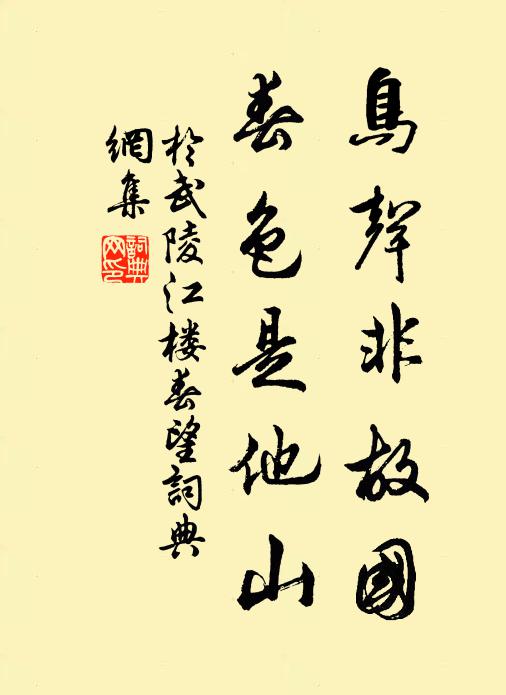 鳥聲非故國
春色是他山
於武陵江楼春望詞典
網集
詞典
网印